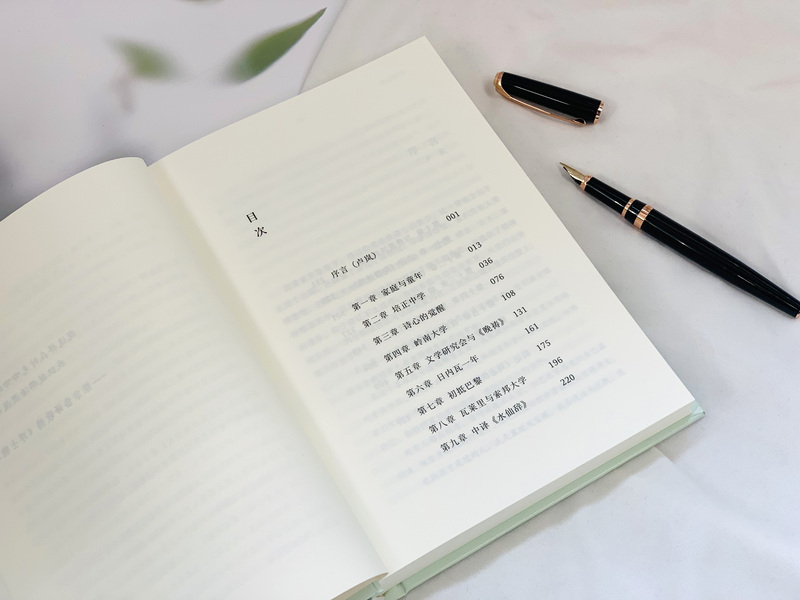 目次
序言（卢岚） 001
第一章 家庭与童年 013
第二章 培正中学 036
第三章 诗心的觉醒 076
第四章 岭南大学 108
第五章 文学研究会与《晚祷》 131
第六章 日内瓦一年 161
第七章 初抵巴黎 175
第八章 瓦莱里与索邦大学 196
第九章 中译《水仙辞》 220